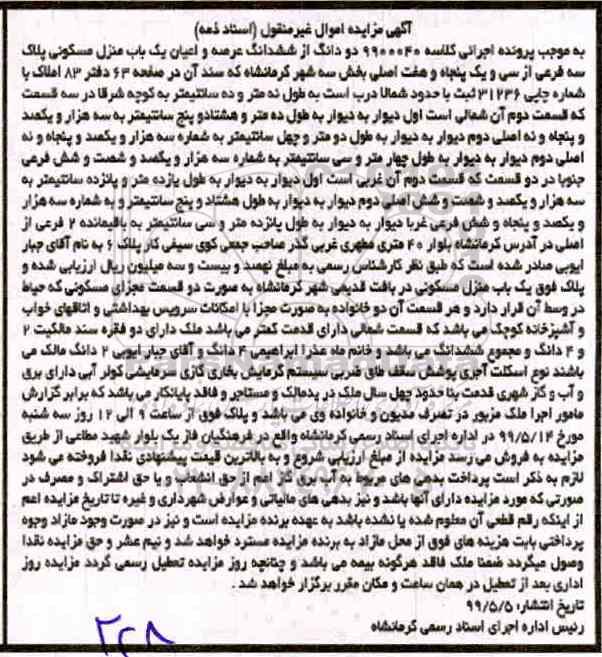 آگهی مزایده اموال غیرمنقول (اسناد ذمه)
به موجب پرونده اجرائی کلاسه ۹۹۰۰۰۴۰ دو دانگ از ششدانگ عرصه و اعیان یک باب منزل مسکونی پلاک
سه فرعی از سی و یک پنجاه و هفت اصلی بخش سه شهر کرمانشاه که سند آن در صفحه ۶۳ دفتر ۸۳ املاک با
شماره چاپی ۳۱۲۳۶ ثبت با حدود شمالا درب است به طول نه متر و ده سانتیمتر به کوچه شرقا در سه قسمت
که قسمت دوم آن شمالی است اول دیوار به دیوار به طول ده متر و هشتادو پنج سانتیمتر به سه هزار و یکصد
و پنجاه و نه اصلی دوم دیوار به دیوار به طول دو متر و چهل سانتیمتر به شماره سه هزار و یکصد و پنجاه و نه
اصلی دوم دیوار به دیوار به طول چهار متر و سی سانتیمتر به شماره سه هزار و یکصد و شصت و شش فرعی
جنوبا در دو قسمت که قسمت دوم آن غربی است اول دیوار به دیوار به طول یازده متر و پانزده سانتیمتر به
سه هزار و یکصد و شصت و شش اصلی دوم دیوار به دیوار به طول هشتاد و پنج سانتیمتر و به شماره سه هزار
و یکصد و پنجاه و شش فرعی غربا دیوار به دیوار به طول پانزده متر و سی سانتیمتر به باقیمانده ۲ فرعی از
اصلی در آدرس کرمانشاه بلوار ۴۰ متری مطهری غربی گذر صاحب جمعی کوی سیفی کار پلاک ۶ به نام آقای جبار
ایوبی صادر شده است که طبق نظر کارشناس رسمی به مبلغ نهصد و بیست و سه میلیون ریال ارزیابی شده و
پلاک فوق یک باب منزل مسکونی در بافت قدیمی شهر کرمانشاه به صورت دو قسمت مجزای مسکونی که حیاط
در وسط آن قرار دارد و هر قسمت آن دو خانواده به صورت مجزا با امکانات سرویس بهداشتی و اتاقهای خواب
و آشپزخانه کوچک می باشد که قسمت شمالی دارای قدمت کمتر می باشد ملک دارای دو فقره سند مالکیت ۲
و ۴ دانگ و مجموع ششدانگ می باشد و خانم ماه عذرا ابراهیمی ۴ دانگ و آقای جبار ایوبی ۲ دانگ مالک می
باشند نوع اسکلت آجری پوشش سقف طاق ضربی سیستم گرمایش بخاری گازی سرمایشی کولر آبی دارای برق
و آب و گاز شهری قدمت بنا حدود چهل سال ملک در یدمالک و مستاجر و فاقد پایانکار می باشد که برابر گزارش
مامور اجرا ملک مزبور در تصرف مدیون و خانواده وی می باشد و پلاک فوق از ساعت ۹ الی ۱۲ روز سه شنبه
مورخ ۹۹/۵/۱۴ در اداره اجرای اسناد رسمی کرمانشاه واقع در فرهنگیان فاز یک بلوار شهید مطاعی از طریق
مزایده به فروش می رسد مزایده از مبلغ ارزیابی شروع و به بالاترین قیمت پیشنهادی نقدا فروخته می شود
لازم به ذکر است پرداخت بدهی های مربوط به آب برق گاز اعم از حق انشعاب و یا حق اشتراک و مصرف در
صورتی که مورد مزایده دارای آنها باشد و نیز بدهی های مالیاتی و عوارض شهرداری و غیره تا تاریخ مزایده اعم
از اینکه رقم قطعی آن معلوم شده یا نشده باشد به عهده برنده مزایده است و نیز در صورت وجود مازاد وجوه
پرداختی بابت هزینه های فوق از محل مازاد به برنده مزایده مسترد خواهد شد و نیم عشر و حق مزایده نقدا
وصول میگردد ضمنا ملک فاقد هرگونه بیمه می باشد و چنانچه روز مزایده تعطیل رسمی گردد مزایده روز
اداری بعد از تعطیل در همان ساعت و مکان مقرر برگزار خواهد شد .
تاریخ انتشار: ۹۹/۵/۵
رئیس اداره اجرای اسناد رسمی کرمانشاه
۲۲۸